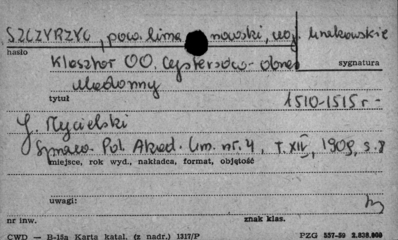 SZCZYRZYC, pow. lima nowski, woj. krakowskie
hasło
Klasztor OO. Cystersów - obraz
sygnatura
Madonny
tytuł
1510-1515 r.
J. Mycielski
Sprawo. Pol. Akad. Um. nr. 4, T. XIV, 1909, s. 8
miejsce, rok wyd., nakładca, format, objętość
uwagi:
nr inw.
znak klas.
CWD — B-15a Karta katal. (z nadr.) 1317/P
PZG 557-59 2.638.000